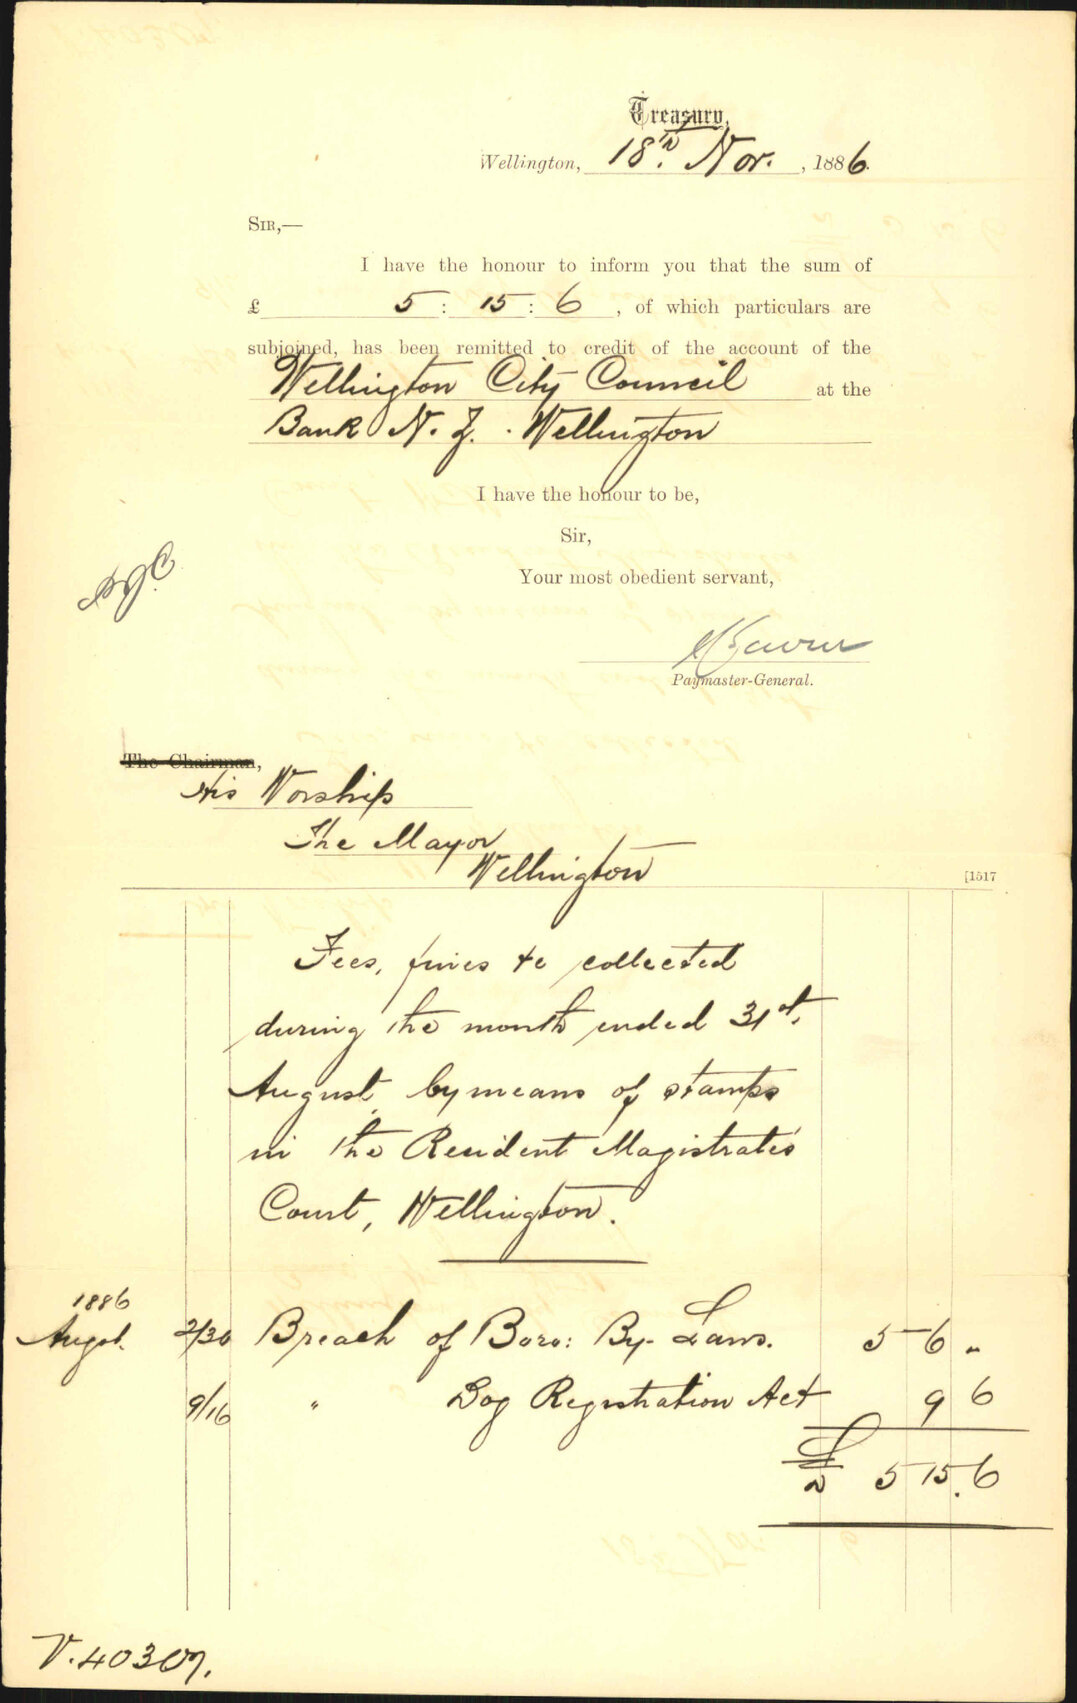 Treasury,
Wellington, 18th. Nor. , 1886.
SIR,—
I have the honour to inform you that the sum of
£ 5 : 15 : 6 , of which particulars are
subjoined, has been remitted to credit of the account of the
Wellington City Council at the
Bank N. Z. . Wellington
I have the honour to be,
Sir,
Your most obedient servant,
Paymaster-General.
The Chairman,
His Worship
The Mayor
Wellington
[1517
Fees, fines &c collected
during the month ended 31st.
August by means of stamps
in the Resident Magistrates'
Court, Wellington.
1886
Augst. 2/30 Breach of Boro: By-Laws. 5 6 "
9/16 " Dog Registration Act 9 6
£ 5 15. 6
V.40307.